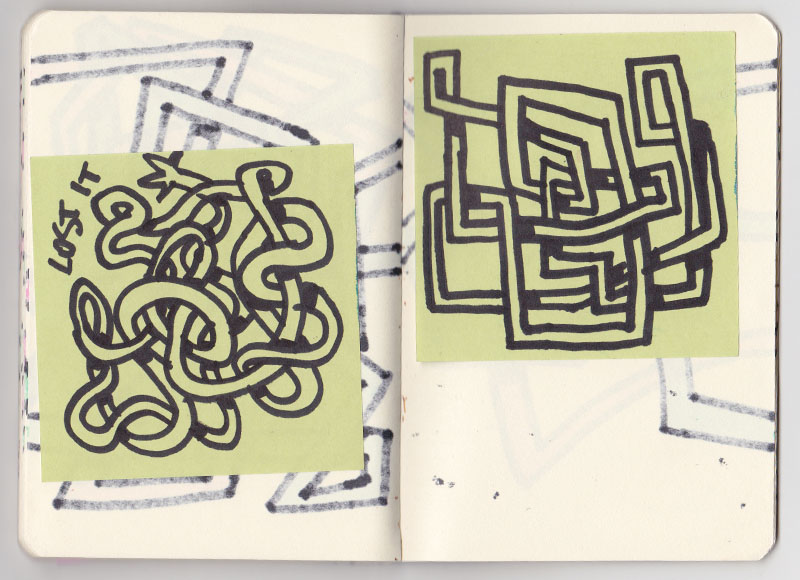 LOST IT